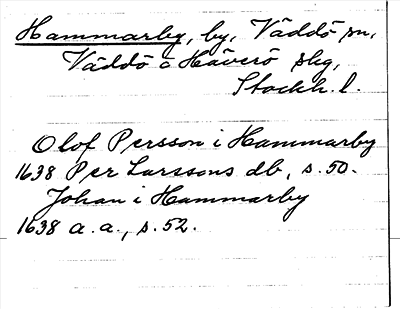 Hammarby, by, Väddö sn,
Väddö o Häverö skg,
Stockh. l.
Olof Persson i Hammarby
1638 Per Larssons db, s. 50.
Johan i Hammarby
1638 a. a., s. 52.